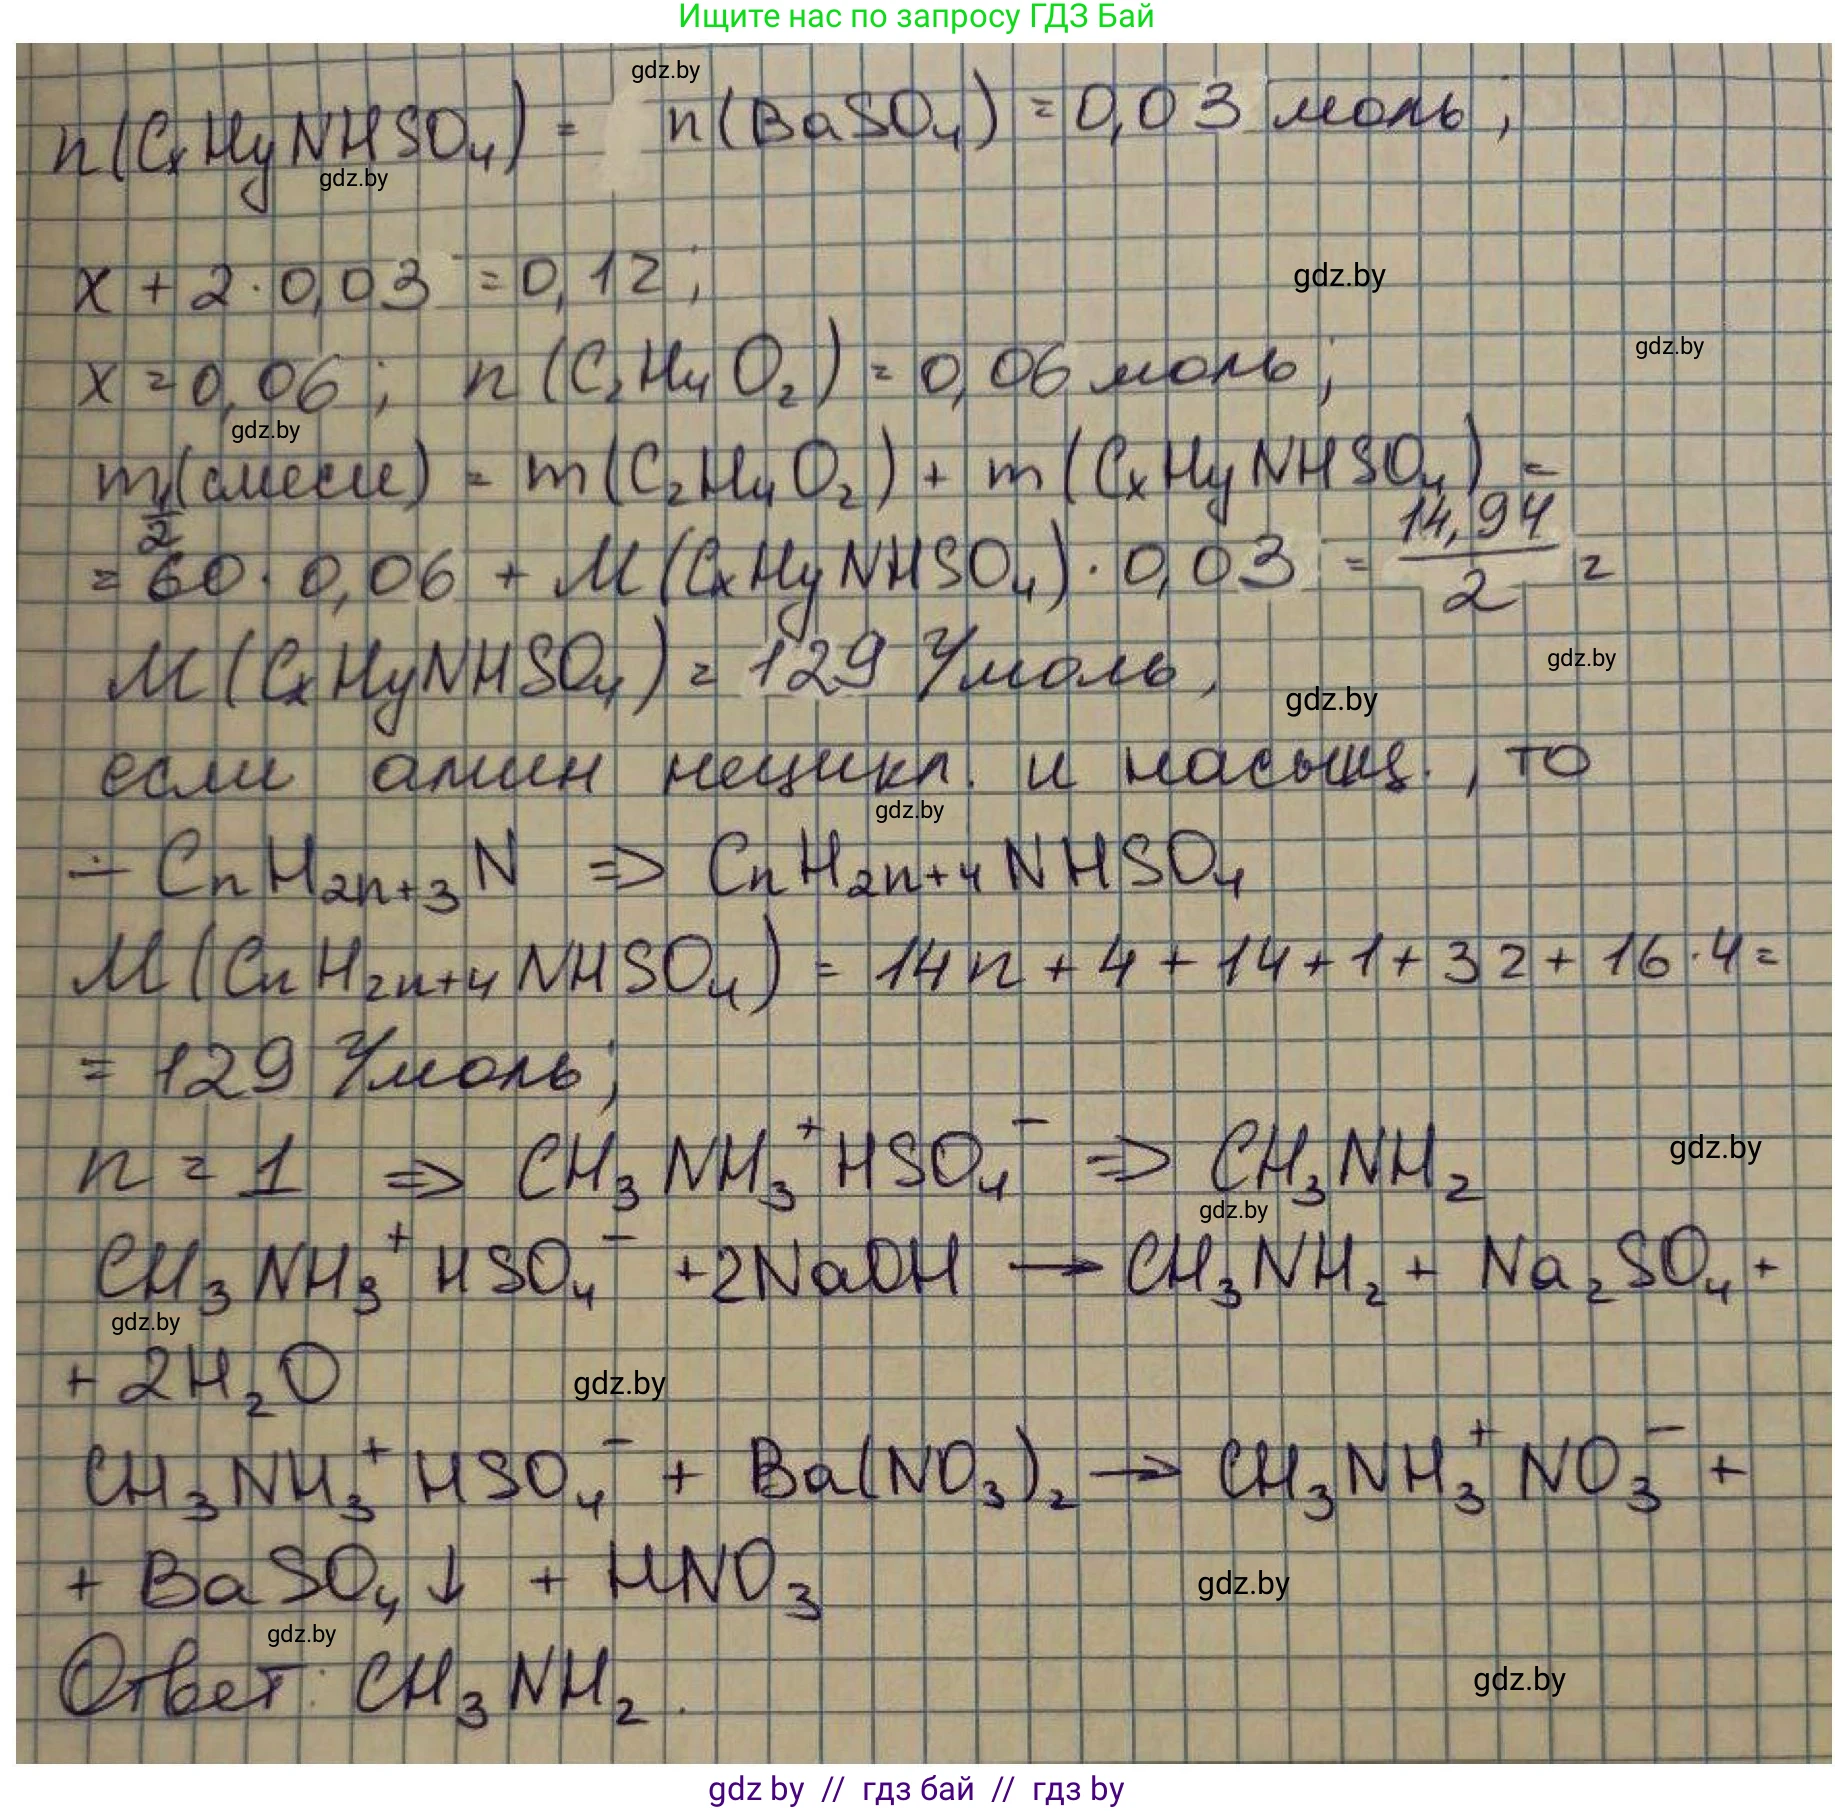 Ищите нас по запросу ГДЗ Бай
gdz.by
n(CₓHyNHSO₄) = n(BaSO₄) = 0,03 моль;
gdz.by
x + 2·0,03 = 0,12;
gdz.by
gdz.by
x = 0,06; n(C₂H₄O₂) = 0,06 моль;
gdz.by
m½(смеси) = m(C₂H₄O₂) + m(CₓHyNHSO₄) =
= 60·0,06 + M(CₓHyNHSO₄)·0,03 = 14,94/2 г
M(CₓHyNHSO₄) = 129 г/моль,
gdz.by
gdz.by
если амин нецикл. и насыщ., то
gdz.by
– CnH2n+3N ⇒ CnH2n+4NHSO₄
M(CnH2n+4NHSO₄) = 14n + 4 + 14 + 1 + 32 + 16·4 =
= 129 г/моль;
n = 1 ⇒ CH₃NH₃⁺HSO₄⁻ ⇒ CH₃NH₂
gdz.by
gdz.by
CH₃NH₃⁺HSO₄⁻ +2NaOH → CH₃NH₂ + Na₂SO₄ +
gdz.by
+ 2H₂O
gdz.by
CH₃NH₃⁺HSO₄⁻ + Ba(NO₃)₂ → CH₃NH₃⁺NO₃⁻ +
+ BaSO₄↓ + HNO₃
gdz.by
gdz.by
Ответ: CH₃NH₂.
gdz.by
gdz by // гдз бай // гдз by